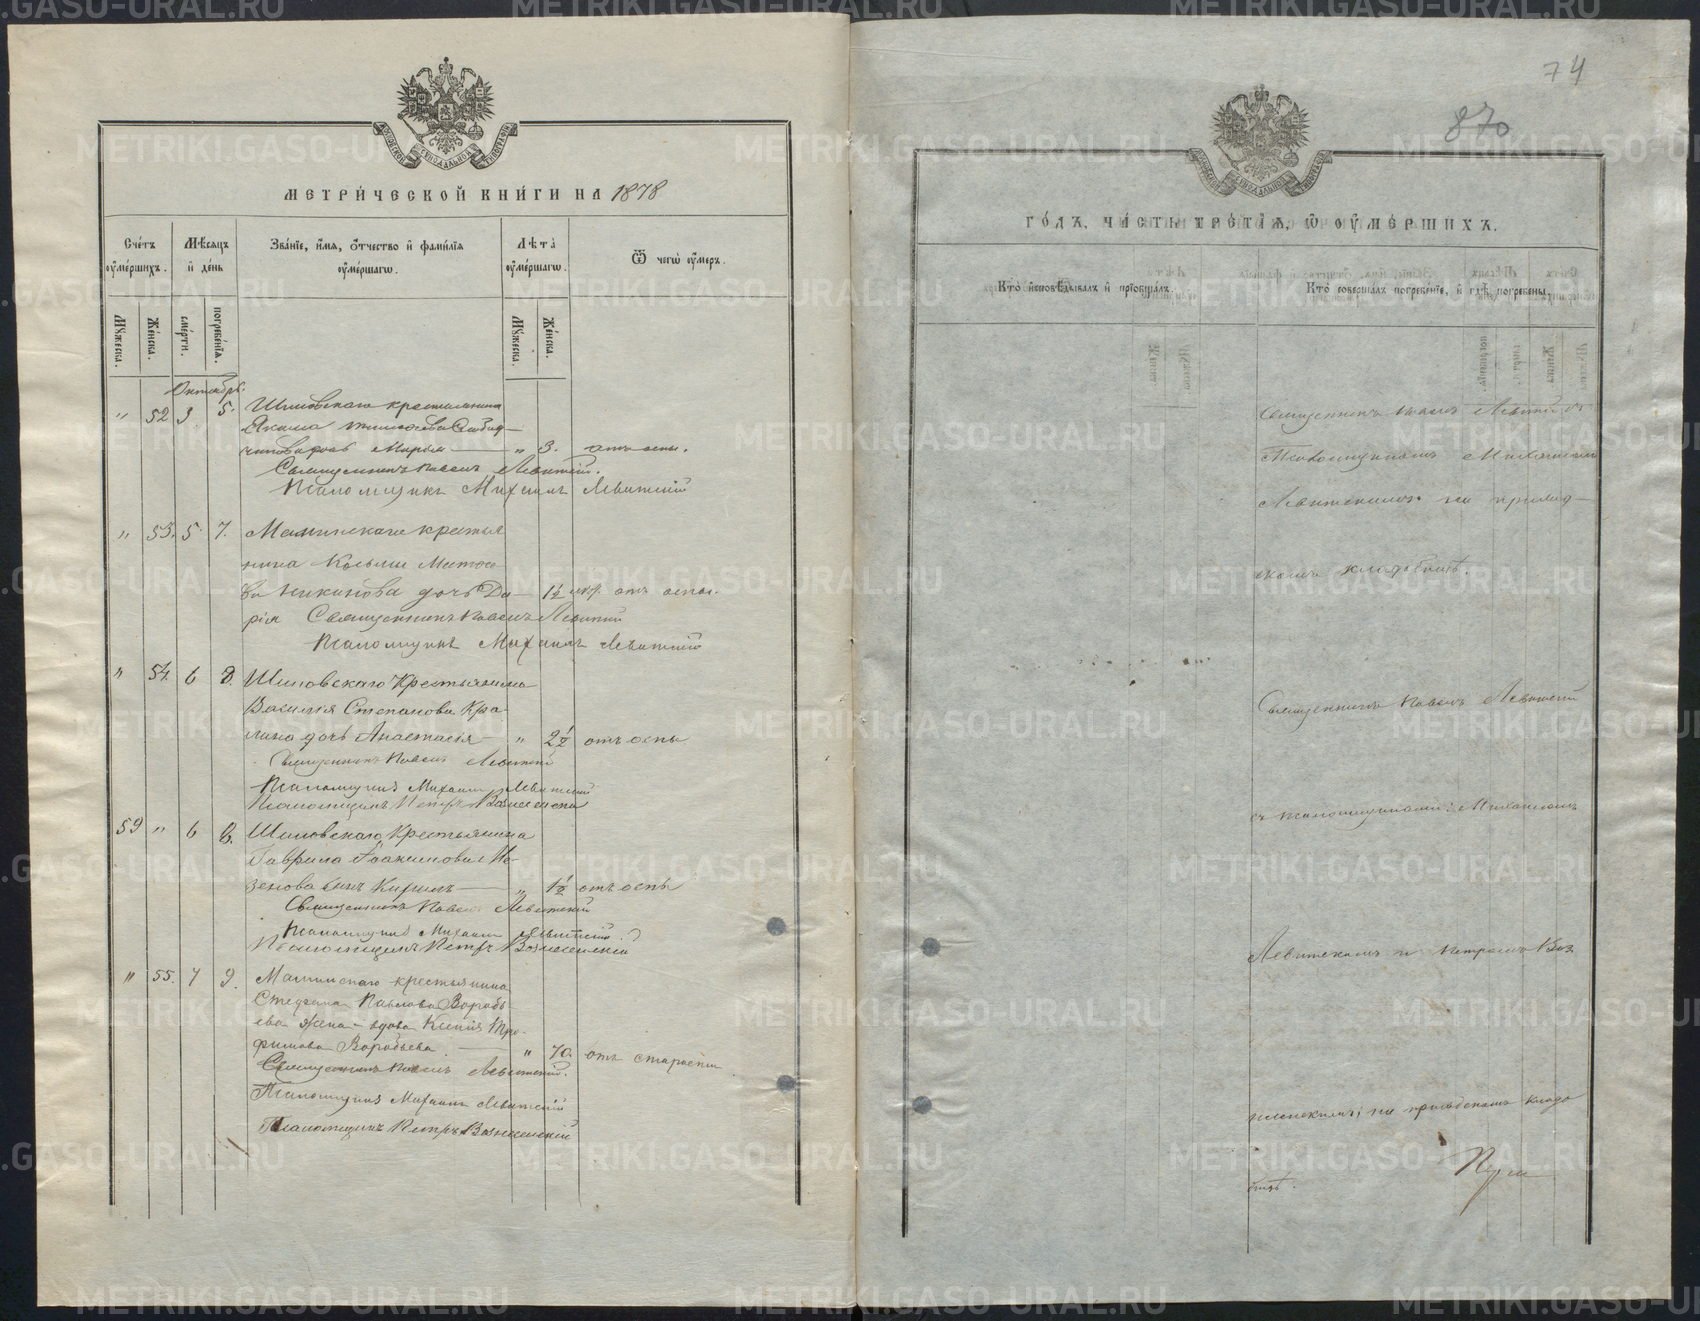 МЕТРИ́ЧЕСКОЙ КНИ́ГИ НА 1878
Сче́тъ ᲂу҆ме́ршихъ.
Мѣ́сяцъ и҆ де́нь
Зва́нїе, и҆́мя, ѻ҆́тчество и҆ фами́лїя ᲂу҆ме́ршагѡ.
Лѣ́та ᲂу҆ме́ршагѡ.
Ѿ чегѡ̀ ᲂу҆́меръ.
Мꙋ́жеска.
Же́нска.
сме́рти.
погребе́нїя.
Мꙋ́жеска.
Же́нска.
Октябрь.
" 52 3 5. Шиловскаго крестьянина
Акима
дочь Марья " 3. отъ оспы.
Священникъ Павелъ Левитскій.
Псаломщикъ Михаилъ Левитскій
" 53. 5 7. Маминскаго крестья
нина Косьмы Матѳе
ва дочь Да- 1½ отъ оспы.
рія Священникъ Павелъ Левитскій
Псаломщикъ Михаилъ Левитскій
" 54. 6 8. Шиловскаго Крестьянина
Василія Степанова Кра-
дочь Анастасія " 2½ отъ оспы
Священникъ Павелъ Левитскій
Псаломщикъ Михаилъ Левитскій
Псаломщикъ Петръ Вознесенскій
59 " 6 8. Шиловскаго Крестьянина
Гаврила Іоакимова
сынъ Кирилъ " 1½ отъ оспы
Священникъ Павелъ Левитскій
Псаломщикъ Михаилъ Левитскій
Псаломщикъ Петръ Вознесенскій
" 55. 7 9. Маминскаго крестьянина
Стефана Павлова Воробь
ева жена - вдова Ксенія Тро-
фимова Воробьева " 70. отъ старости
Священникъ Павелъ Левитскій.
Псаломщикъ Михаилъ Левитскій
Псаломщикъ Петръ Вознесенскій
74
870
ГО́ДА, ЧА́СТЬ ТРЕ́ТЇѦ, Ѡ҆ ОУ҆МЕ́РШИХЪ.
Кто̀ и҆сповѣ́дывалъ и҆ прїѡбща́лъ.
Кто̀ соверша́лъ погребе́нїе, и҆ гдѣ̀ погребены̀.
Священникъ Павелъ Левитскій съ
Псаломщикомъ Михаиломъ
Левитскимъ на приход-
скомъ кладбищѣ.
Священникъ Павелъ Левитскій
съ псаломщиками: Михаиломъ
Левитскимъ и Петромъ Воз
несенскимъ; на приходскомъ кладо
бищѣ.